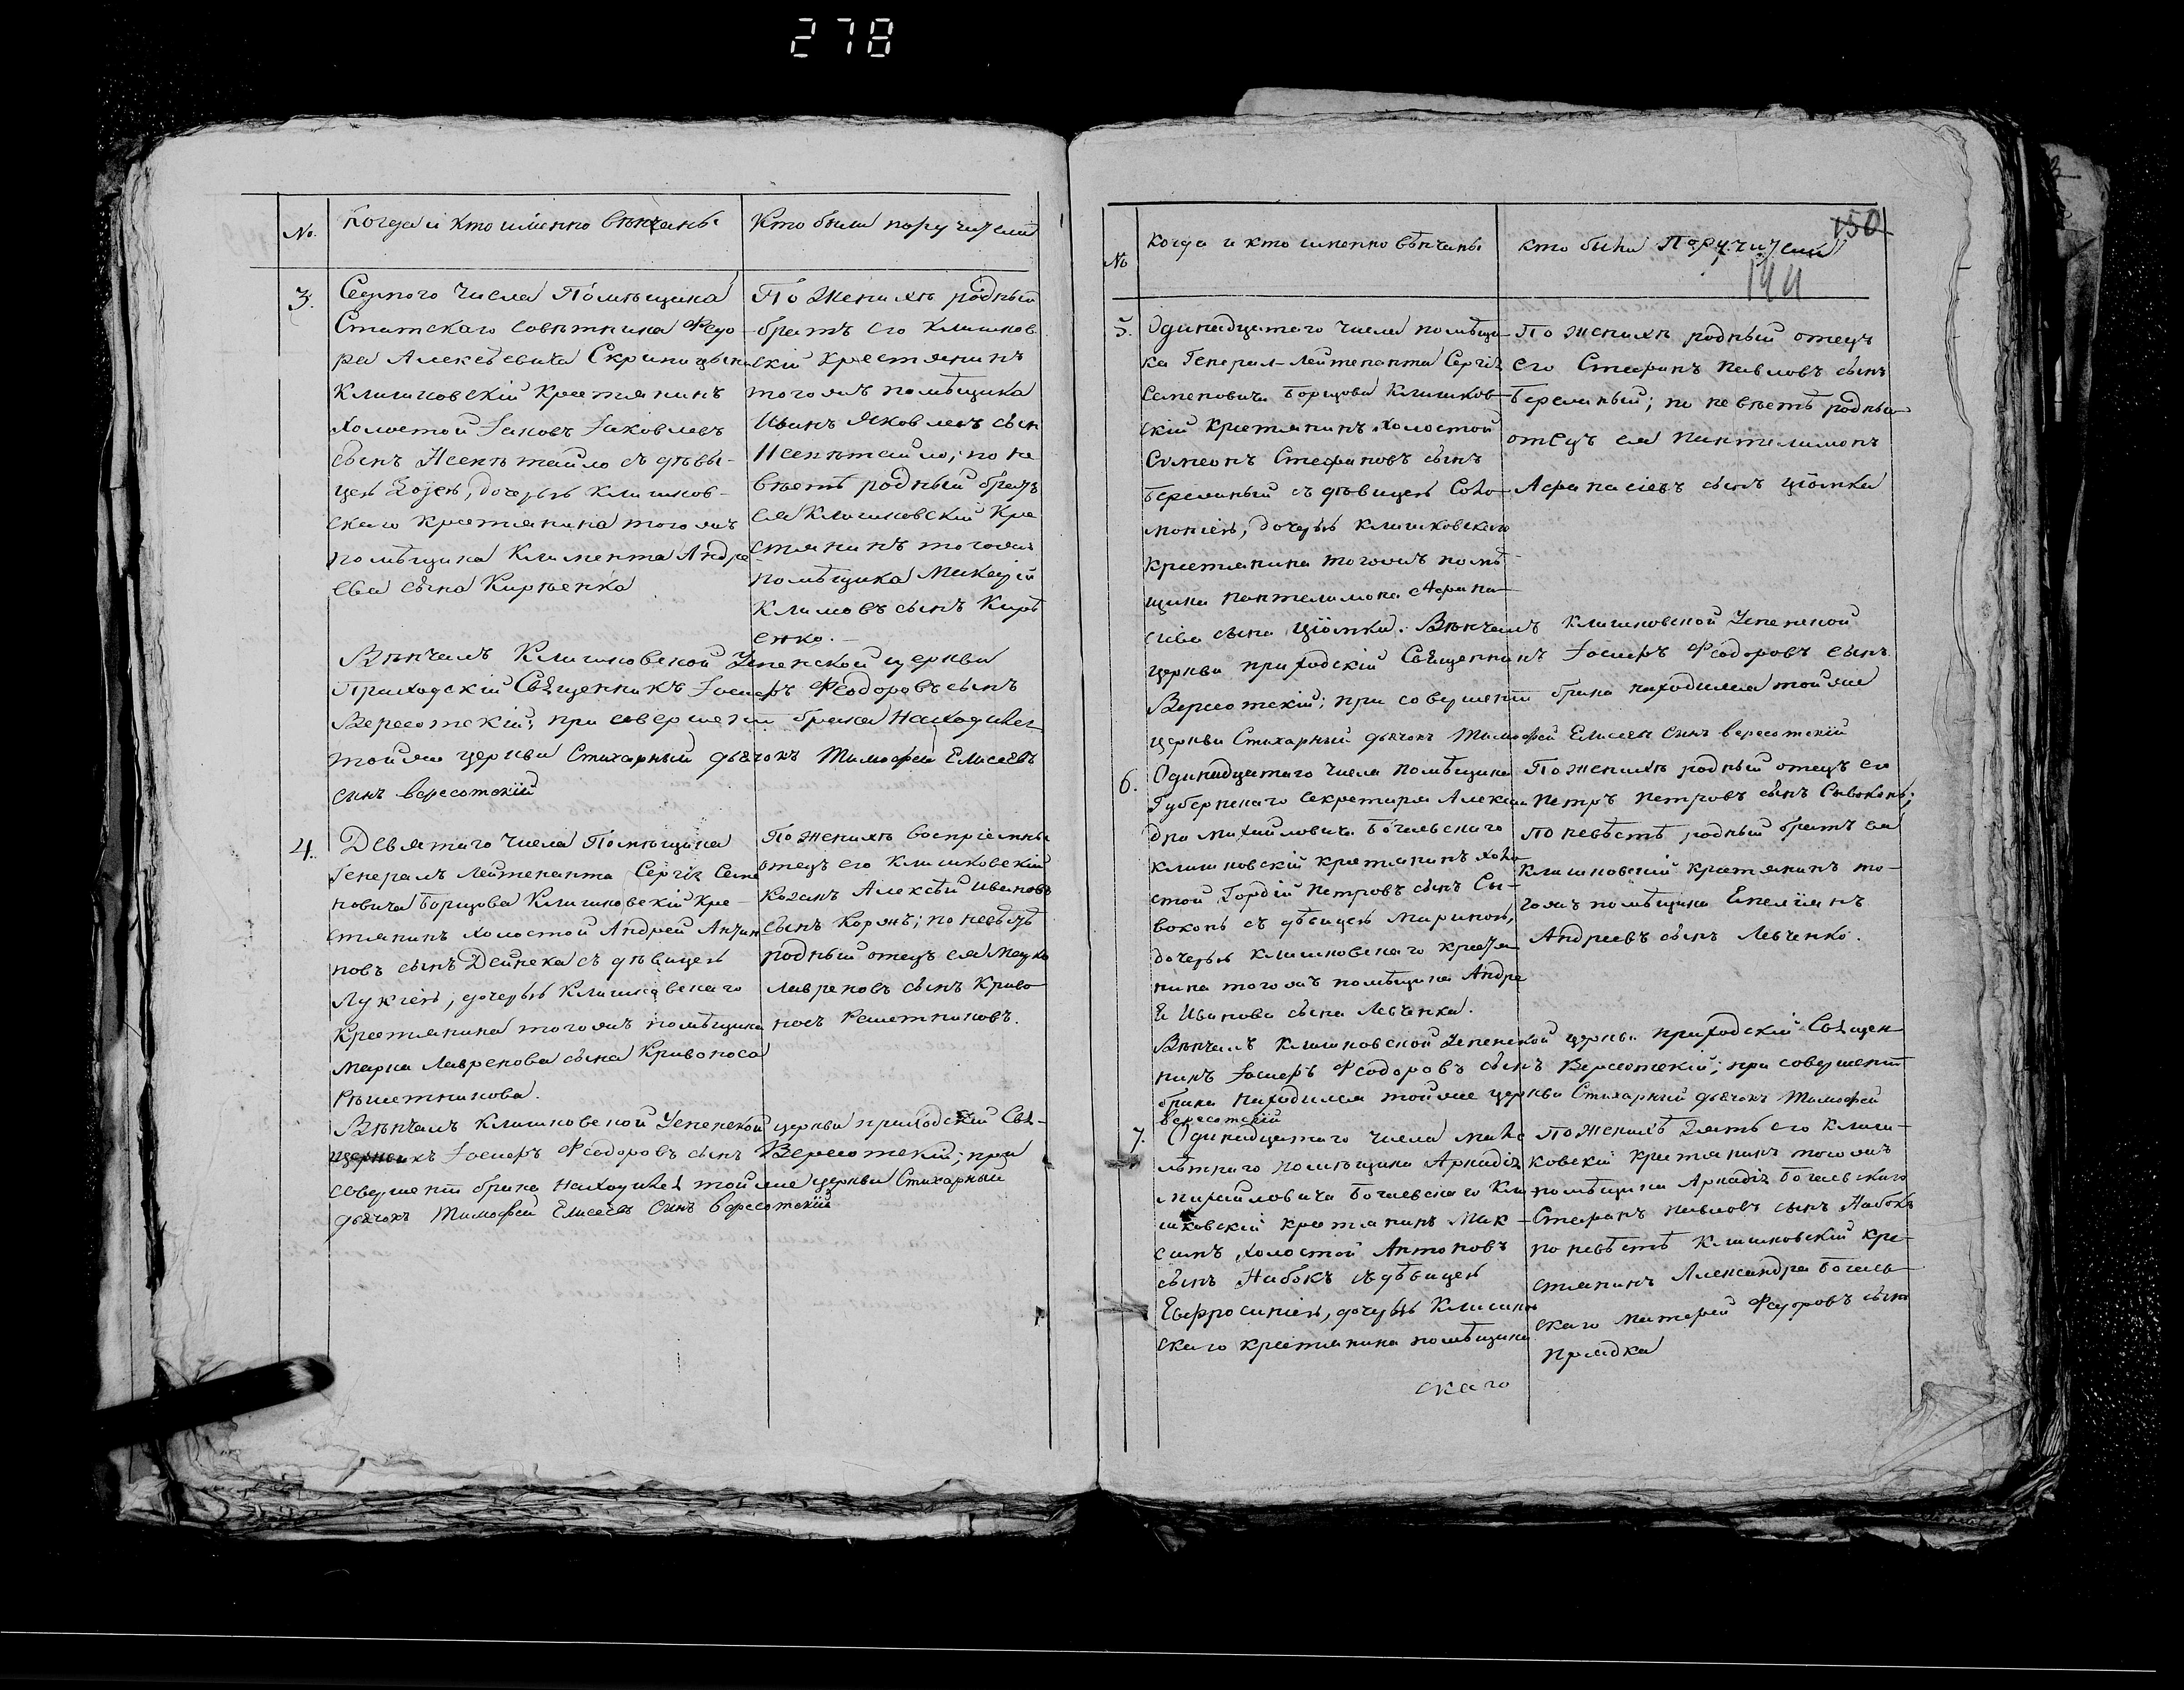 278
№.
Когда и кто именно вѣнчаны
Кто были поручители
3.
Седмого числа Помѣщика
Статскаго совѣтника Федо-
ра Алексѣевича Скрипицына
Клишковскій Крестянинъ
Холостой Іаковъ Іаковлевъ
сынъ съ дѣви-
цею Зоею, дочерью Клишков-
скаго крестянина тогожъ
помѣщика Климента Андре
ева сына Кирѣенка
По Женихѣ родный
братъ его Клишков
скій Крестянинъ
тогожъ помѣщика
Иванъ Яковлевъ сын
по не
вѣстѣ родный братъ
ея Клишковскій Кре
стянинъ тогожъ
помѣщика
Климовъ сынъ Кирѣ
енко.
Вѣнчалъ Клишковской Успенской церкви
Приходскій Священникъ Іосифъ Феодоровъ сынъ
Вересотскій; при совершеніи брака Находился
тойже церкви Стихарный дьячокъ Тимофей Елисеевъ
синъ вересотскій
4.
Девятаго числа Помѣщика
Генералъ Лейтенанта Сергія Семе
новича Борщова Клишковскій Кре-
стянинъ холостой Андрей
новъ сынъ Дейнека съ дѣвицею
Лукіею, дочерью Клишковскаго
Крестянина тогожъ помѣщика
Марка Лавренова сына Кривоноса
Рѣшетникова.
По Женихѣ воспріемный
отецъ его Клишковскій
Козакъ Алексѣй Ивановъ
сынъ Коржъ; по невѣстѣ
родный отецъ ея Марко
Лавреновъ сынъ Криво
носъ Решетниковъ.
Вѣнчалъ Клишковской Успенской церкви приходскій Свя-
щенникъ Іосифъ Феодоровъ сынъ Вересотскій; при
совершеніи брака Находился тойже церкви Стихарный
дьячокъ Тимофей Елисеевъ Синъ вересотскій
№
Когда и кто именно вѣнчаны
кто были Поручители
150
5.
Одинадцатого числа помѣщи-
ка Генерал-Лейтенанта Сергія
Семеновича Борщова Клишков-
скій крестянинъ Холостой
Симеонъ Стефановъ сынъ
съ дѣвицею Соло-
моніею, дочерью Клишковскаго
крестянина тогожъ помѣ-
щика Пантелимона Афана-
сіева сына Цiомки. Вѣнчалъ Клишковской Успенской
По женихѣ родный отецъ
его Стефанъ Павловъ сынъ
по невѣстѣ родный
отецъ ея Пантелимонъ
Афанасіевъ сынъ Цiомка
церкви приходскій Священникъ Іосифъ Феодоровъ сынъ
Вересотскій; при совершеніи брака находился тойже
церкви Стихарный дьячокъ Тимофей Елисеевъ Синъ вересотскій
6.
Одинадцатаго числа помѣщика
Губернскаго Секретаря Алексан
дра Михайловича Богаевскаго
клишковскій крестянинъ холо
стой Гордій Петровъ сынъ Сы-
воконь съ дѣвицею Мариною,
дочерью клишковскаго крестя
нина тогожъ помѣщика Андре
я Иванова сына Левченка.
По женихѣ родный отецъ его
Петръ Петровъ сынъ Сывоконь;
по невѣстѣ родный братъ ея
Клишковскій крестянинъ то-
гожъ помѣщика Емеліянъ
Андреевъ сынъ Левченко.
Вѣнчалъ Клишковской Успенской церкви приходскій Священ-
никъ Іосифъ Феодоровъ сынъ Вересотскій; при совершеніи
брака Находился тойже церкви Стихарный дьячокъ Тимофей
вересотскій
7.
Одинадцатаго числа мало
лѣтнаго помѣщика Аркадія
Михайловича Богаевскаго Кли
шковскій крестянинъ Мак-
симъ Холостой Антоновъ
сынъ Набокъ съ дѣвицею
Евфросиніею, дочерью Клишков
скаго крестянина помѣщика
скаго
По Женихѣ Зять его Клиш-
ковскій крестянинъ тогожъ
помѣщика Аркадія Богаевскаго
Стефанъ Павловъ сынъ Набокъ
по невѣстѣ Клишковскій кре-
стянинъ Александра Богаев-
скаго Матфей Федоровъ сынъ
Прядка